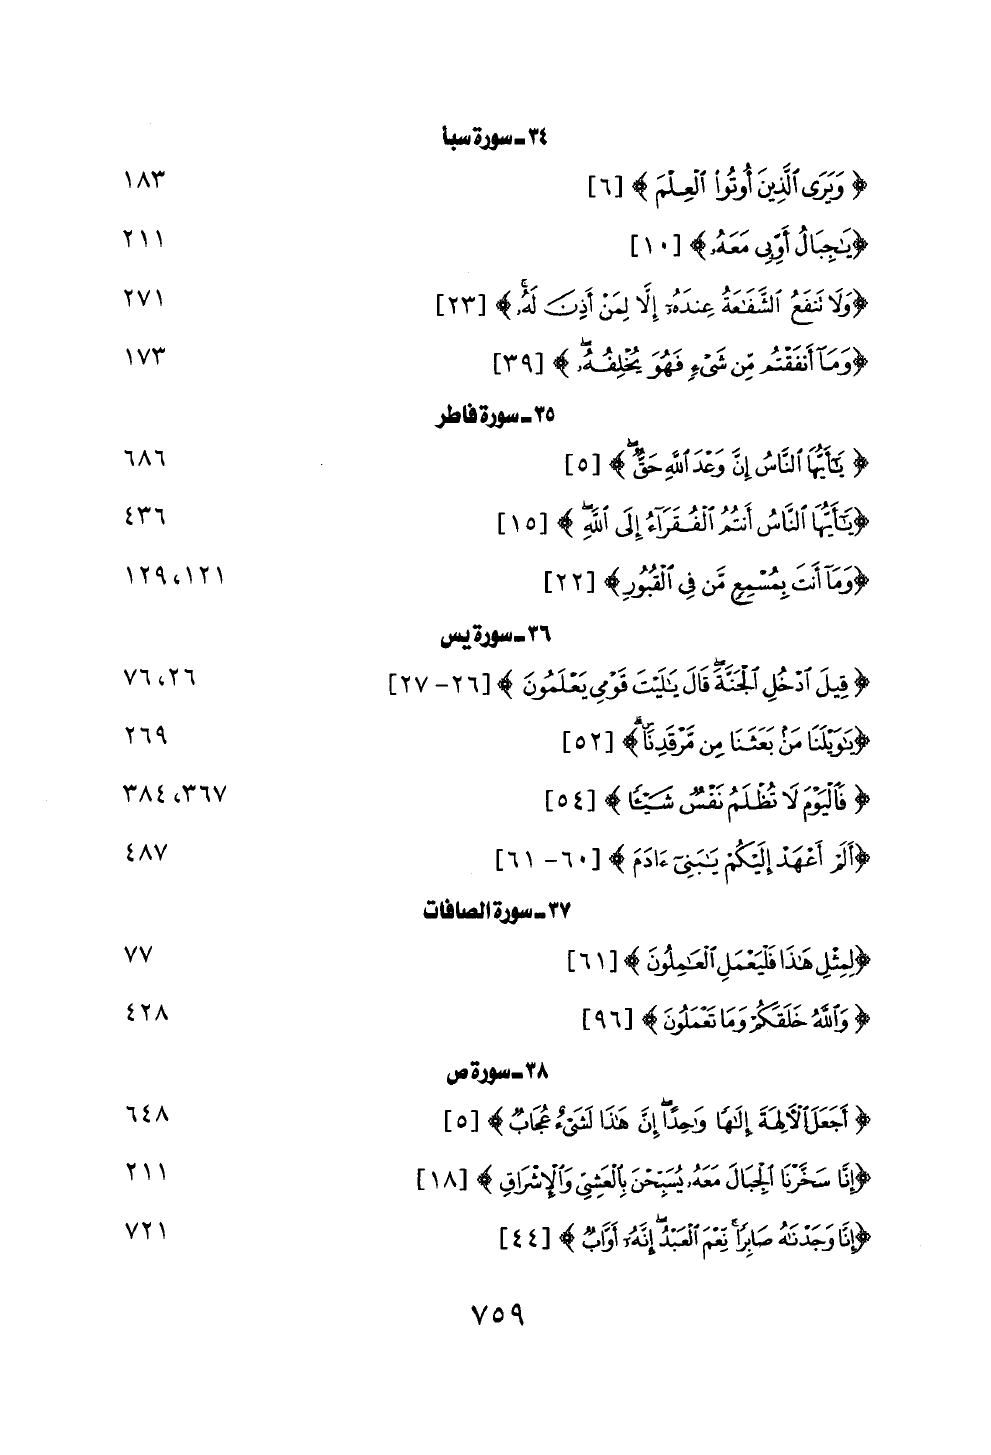 ٣٤ ـ سورة سبأ
﴿ وَيَرَى ٱلَّذِينَ أُوتُوا۟ ٱلْعِلْمَ ﴾ [٦] ١٨٣
﴿يَٰجِبَالُ أَوِّبِى مَعَهُۥ﴾ [١٠] ٢١١
﴿وَلَا تَنفَعُ ٱلشَّفَٰعَةُ عِندَهُۥٓ إِلَّا لِمَنْ أَذِنَ لَهُۥ ۚ﴾ [٢٣] ٢٧١
﴿وَمَآ أَنفَقْتُم مِّن شَىْءٍ فَهُوَ يُخْلِفُهُۥ ۖ﴾ [٣٩] ١٧٣
٣٥ ـ سورة فاطر
﴿ يَٰٓأَيُّهَا ٱلنَّاسُ إِنَّ وَعْدَ ٱللَّهِ حَقٌّ ۖ﴾ [٥] ٦٨٦
﴿يَٰٓأَيُّهَا ٱلنَّاسُ أَنتُمُ ٱلْفُقَرَآءُ إِلَى ٱللَّهِ ۖ﴾ [١٥] ٤٣٦
﴿وَمَآ أَنتَ بِمُسْمِعٍ مَّن فِى ٱلْقُبُورِ﴾ [٢٢] ١٢١، ١٢٩
٣٦ ـ سورة يس
﴿ قِيلَ ٱدْخُلِ ٱلْجَنَّةَ ۖ قَالَ يَٰلَيْتَ قَوْمِى يَعْلَمُونَ ﴾ [٢٦ - ٢٧] ٢٦، ٧٦
﴿يَٰوَيْلَنَا مَنۢ بَعَثَنَا مِن مَّرْقَدِنَا ۜ ۗ﴾ [٥٢] ٢٦٩
﴿ فَٱلْيَوْمَ لَا تُظْلَمُ نَفْسٌ شَيْـًٔا ﴾ [٥٤] ٣٦٧، ٣٨٤
﴿أَلَمْ أَعْهَدْ إِلَيْكُمْ يَٰبَنِىٓ ءَادَمَ ﴾ [٦٠ - ٦١] ٤٨٧
٣٧ ـ سورة الصافات
﴿لِمِثْلِ هَٰذَا فَلْيَعْمَلِ ٱلْعَٰمِلُونَ ﴾ [٦١] ٧٧
﴿ وَٱللَّهُ خَلَقَكُمْ وَمَا تَعْمَلُونَ ﴾ [٩٦] ٤٢٨
٣٨ ـ سورة ص
﴿ أَجَعَلَ ٱلْءَالِهَةَ إِلَٰهًا وَٰحِدًا ۖ إِنَّ هَٰذَا لَشَىْءٌ عُجَابٌ ﴾ [٥] ٦٤٨
﴿إِنَّا سَخَّرْنَا ٱلْجِبَالَ مَعَهُۥ يُسَبِّحْنَ بِٱلْعَشِىِّ وَٱلْإِشْرَاقِ ﴾ [١٨] ٢١١
﴿إِنَّا وَجَدْنَٰهُ صَابِرًا ۚ نِّعْمَ ٱلْعَبْدُ ۖ إِنَّهُۥٓ أَوَّابٌ ﴾ [٤٤] ٧٢١
٧٥٩